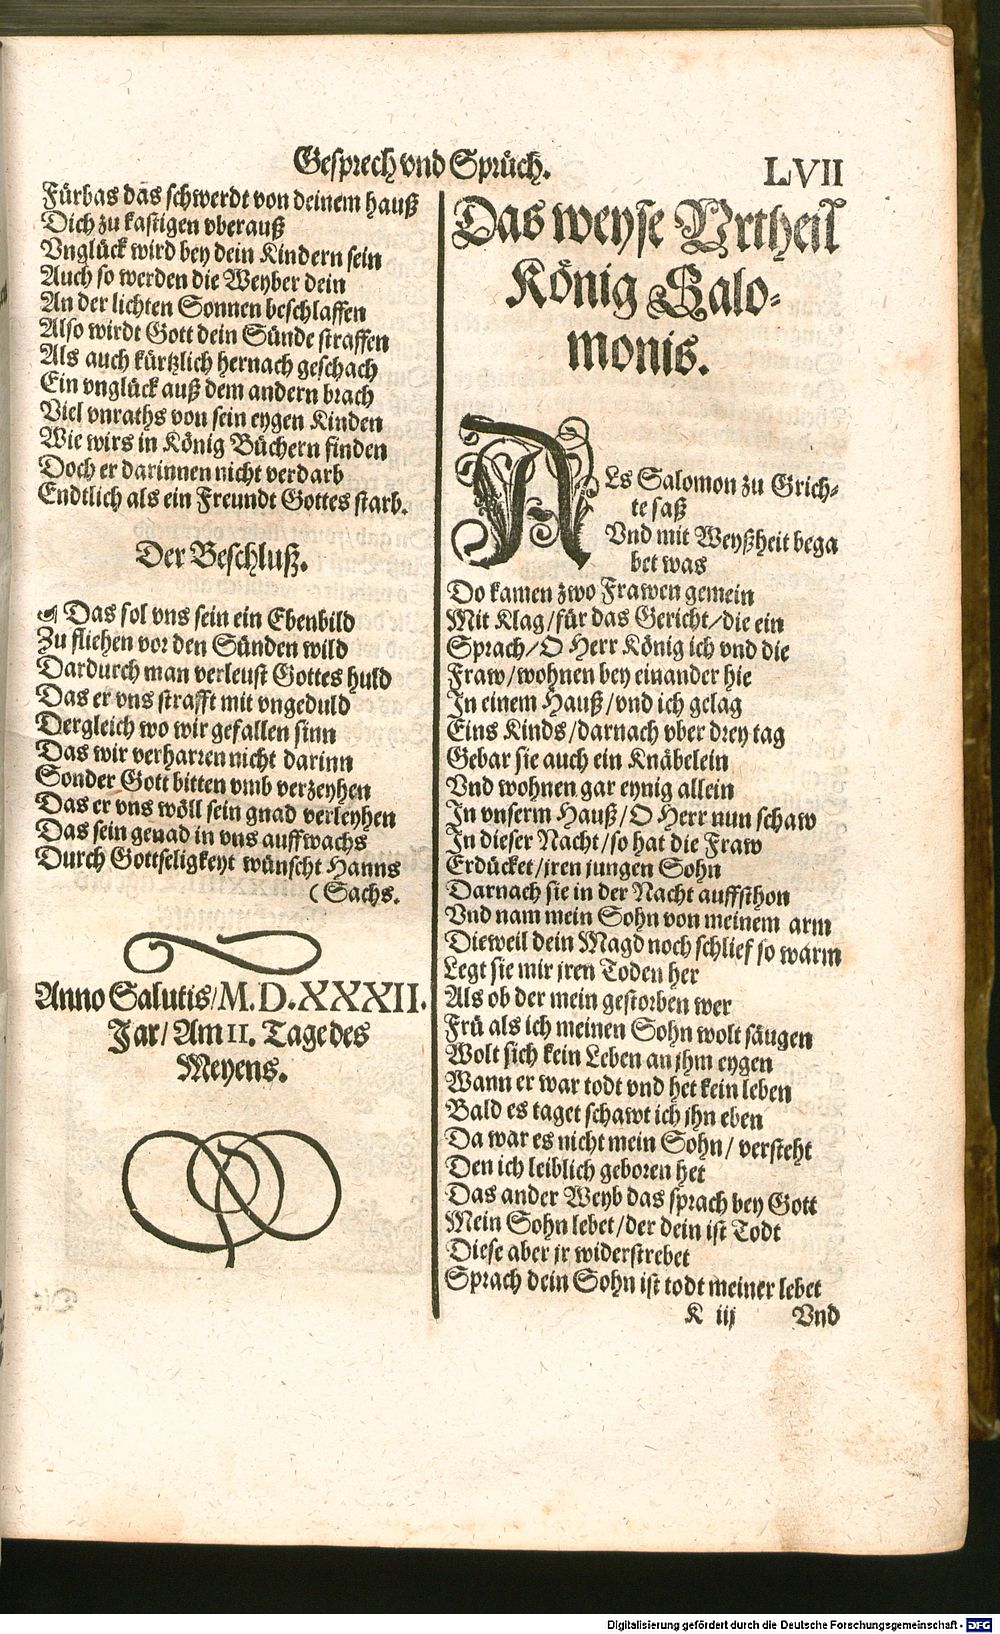 Gesprech vnd Sprüch.
LVII
Fürbas das schwerdt von deinem hauß
Dich zu kastigen vberauß
Vnglück wird bey dein Kindern sein
Auch so werden die Weyber dein
An der lichten Sonnen beschlaffen
Also wirdt Gott dein Sünde straffen
Als auch kürtzlich hernach geschach
Ein vnglück auß dem andern brach
Viel vnraths von sein eygen Kinden
Wie wirs in König Büchern finden
Doch er darinnen nicht verdarb
Endtlich als ein Freundt Gottes starb.
Der Beschluß.
Das sol vns sein ein Ebenbild
Zu fliehen vor den Sünden wild
Dardurch man verleust Gottes huld
Das er vns strafft mit vngeduld
Dergleich wo wir gefallen sinn
Das wir verharren nicht darinn
Sonder Gott bitten vmb verzeyhen
Das er vns wöll sein gnad verleyhen
Das sein genad in vns auffwachs
Durch Gottseligkeyt wünscht Hanns
(Sachs.
Anno Salutis/M.D.XXXII.
Jar/Am II. Tage des
Meyens.
Das weyse Vrtheil
König Salo-
monis.
ALs Salomon zu Grich-
te saß
Vnd mit Weyßheit bega
bet was
Do kamen zwo Frawen gemein
Mit Klag/für das Gericht/die ein
Sprach/O Herr König ich vnd die
Fraw/wohnen bey einander hie
In einem Hauß/vnd ich gelag
Eins Kinds/darnach vber drey tag
Gebar sie auch ein Knäbelein
Vnd wohnen gar eynig allein
In vnserm Hauß/O Herr nun schaw
In dieser Nacht/so hat die Fraw
Erdücket/jren jungen Sohn
Darnach sie in der Nacht auffsthon
Vnd nam mein Sohn von meinem arm
Dieweil dein Magd noch schlief so warm
Legt sie mir jren Toden her
Als ob der mein gestorben wer
Frü als ich meinen Sohn wolt säugen
Wolt sich kein Leben an jhm eygen
Wann er war todt vnd het kein leben
Bald es taget schawt ich jhn eben
Da war es nicht mein Sohn/versteht
Den ich leiblich geboren het
Das ander Weyb das sprach bey Gott
Mein Sohn lebet/der dein ist Todt
Diese aber jr widerstrebet
Sprach dein Sohn ist todt meiner lebet
K iij
Vnd
Digitalisierung gefördert durch die Deutsche Forschungsgemeinschaft - DFG